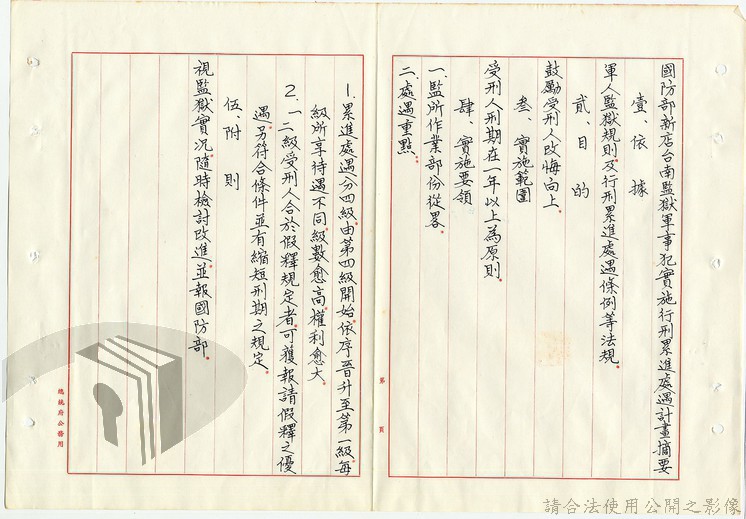 國防部新店台南監獄軍事犯實施行刑累進處遇計畫摘要
壹、依據
軍人監獄規則及行刑累進處遇條例等法規。
貳、目的
鼓勵受刑人改悔向上。
叁、實施範圍
受刑人刑期在一年以上為原則。
肆、實施要領
一、監所作業部份從畧。
二、處遇重點。
1.累進處遇分四級,由第四級開始,依序晉升至第一級,每
級所享待遇不同,級數愈高,權利愈大。
2.一、二級受刑人合於假釋規定者,可獲報請假釋之優
遇,另符合條件並有縮短刑期之規定。
伍、附則
視監獄實況,隨時檢討改進,並報國防部。
第 頁
總統府公務用
請合法使用公開之影像